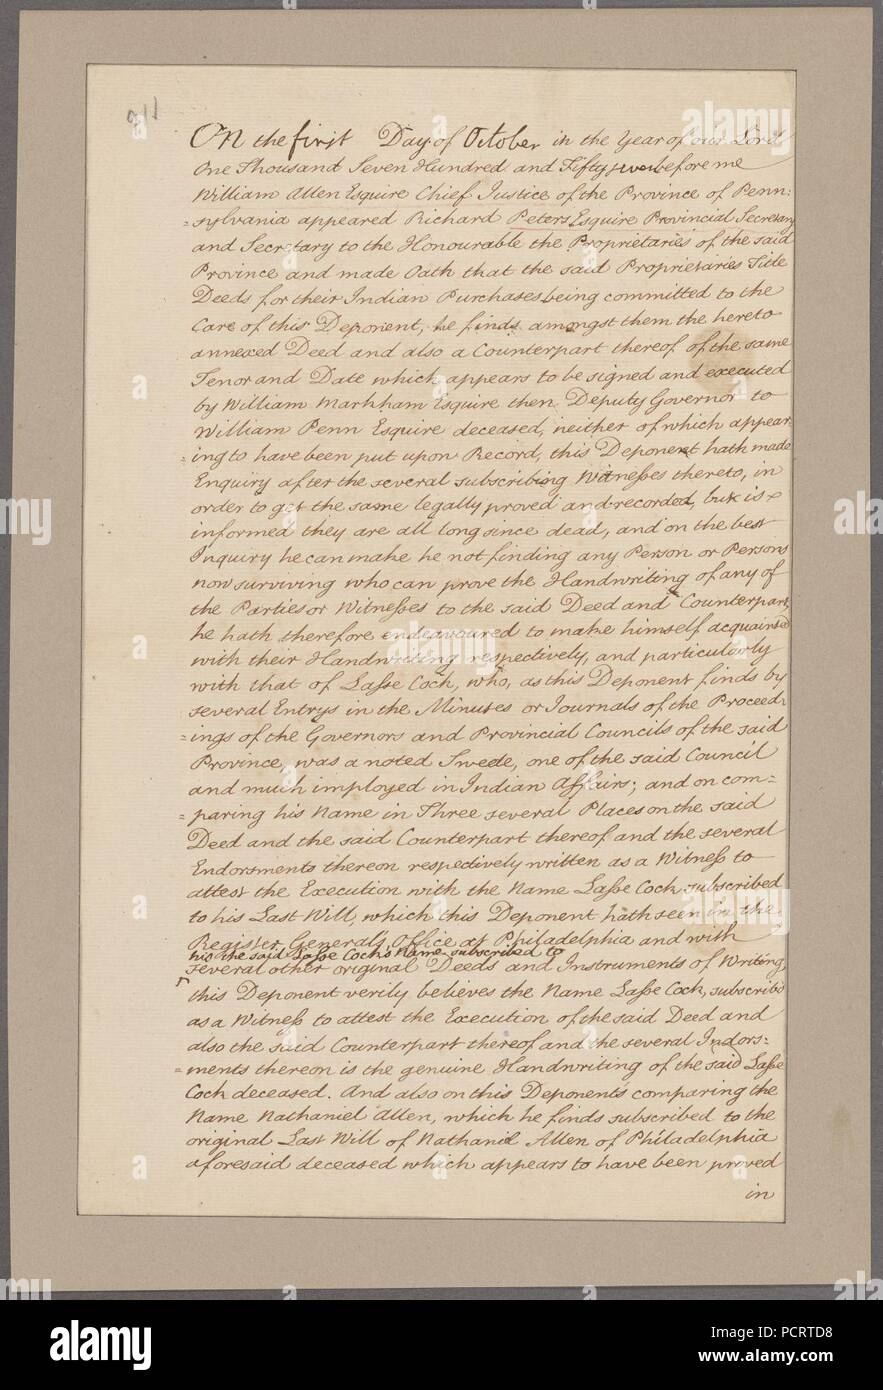 On the first Day of October in the Year of our Lord
One Thousand Seven Hundred and Fifty seven before me
William Allen Esquire Chief Justice of the Province of Penn:
=sylvania appeared Richard Peters Esquire Provincial Secretary
and Secretary to the Honourable the Proprietaries of the said
Province and made Oath that the said Proprietaries Title
Deeds for their Indian Purchases being committed to the
Care of this Deponent, he finds amongst them the hereto
annexed Deed and also a Counterpart thereof of the same
Tenor and Date which appears to be signed and executed
by William Markham Esquire then Deputy Governor to
William Penn Esquire deceased, neither of which appear:
=ing to have been put upon Record, this Deponent hath made
Enquiry after the several subscribing Witnesses thereto, in
order to get the same legally proved and recorded, but is
informed they are all long since dead, and on the best
Inquiry he can make he not finding any Person or Persons
now surviving who can prove the Handwriting of any of
the Parties or Witnesses to the said Deed and Counterpart,
he hath therefore endeavoured to make himself acquainted
with their Handwriting respectively, and particularly
with that of Lasse Cock, who, as this Deponent finds by
several Entrys in the Minutes or Journals of the Proceed:
=ings of the Governors and Provincial Councils of the said
Province, was a noted Swede, one of the said Council
and much imployed in Indian Affairs; and on com=
=paring his Name in Three several Places on the said
Deed and the said Counterpart thereof and the several
Endorsments thereon respectively written as a Witness to
attest the Execution with the Name Lasse Cock subscribed
to his Last Will, which this Deponent hath seen in the
Register General's Office at Philadelphia and with
his the said Lasse Cock's Name subscribed to
several other original Deeds and Instruments of Writing,
this Deponent verily believes the Name Lasse Cock, subscribd
as a Witness to attest the Execution of the said Deed and
also the said Counterpart thereof and the several Indors:
=ments thereon is the genuine Handwriting of the said Lasse
Cock deceased. And also on this Deponents comparing the
Name Nathaniel Allen, which he finds subscribed to the
original Last Will of Nathaniel Allen of Philadelphia
aforesaid deceased which appears to have been proved
in
alamy
a
alamy
Image ID: PCRTD8
www.alamy.com